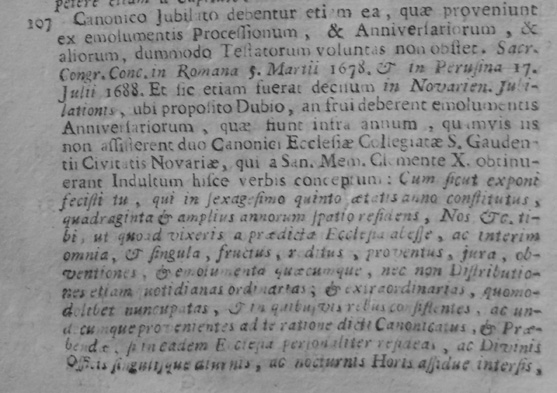 107 Canonico Jubilato debentur etiam ea, quæ proveniunt
ex emolumentis Processionum, & Anniversariorum, &
aliorum, dummodo Testatorum voluntas non obstet. Sacr.
Congr. Conc. in Romana 5. Martii 1678. & in Perusina 17.
Julii 1688. Et sic etiam fuerat decisum in Novarien. Jubi-
lationis, ubi proposito Dubio, an frui deberent emolumentis
Anniversariorum, quæ fiunt infra annum, quamvis iis
non assisterent duo Canonici Ecclesiæ Collegiatæ S. Gauden-
tii Civitatis Novariæ, qui a San. Mem. Clemente X. obtinu-
erant Indultum hisce verbis conceptum: Cum sicut exponi
fecisti tu, qui in sexagesimo quinto ætatis anno constitutus,
quadraginta & amplius annorum spatio residens, Nos &c. ti-
bi, ut quoad vixeris a prædicta Ecclesia abesse, ac interim
omnia, & singula, fructus, redditus, proventus, jura, ob-
ventiones, & emolumenta quæcumque, nec non Distributio-
nes etiam quotidianas ordinarias, & extraordinarias, quomo-
dolibet nuncupatas, & in quibusvis rebus consistentes, ac un-
decumque provenientes ad te ratione dicti Canonicatus, & Præ-
bendæ, si in eadem Ecclesia personaliter resideas, ac Divinis
Officiis singulisque diurnis, ac nocturnis Horis assidue intersis,